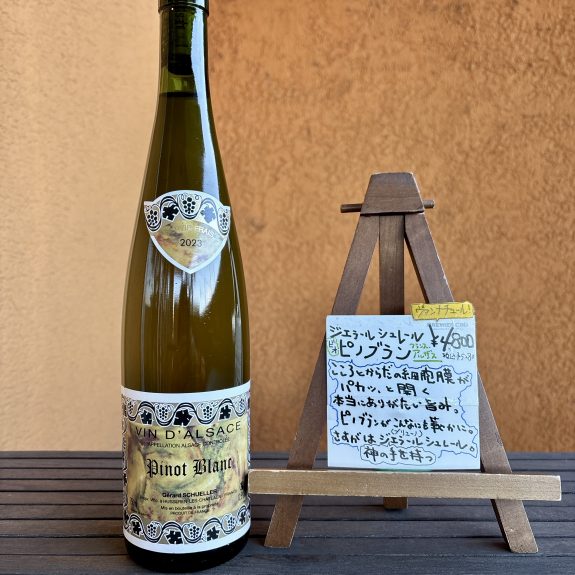 FRAIS
2023
VIN D'ALSACE
APPELLATION ALSACE CONTRÔLÉE
Pinot Blanc
Gérard SCHUELLER
à HUSSEREN-LES-CHÂTEAUX
Mis en bouteille à la propriété
PRODUIT DE FRANCE
ヴァンナチュール!
ジェラール シュレル
¥4800
ビオ
ピノブラン
フランス
アルザス
こころとからだの細胞膜が
パカッ、と開く
本当にありがたい旨み。
ピノブランがこんなにも華かに。
さすがはジェラール シュレール。
神の手を持つ